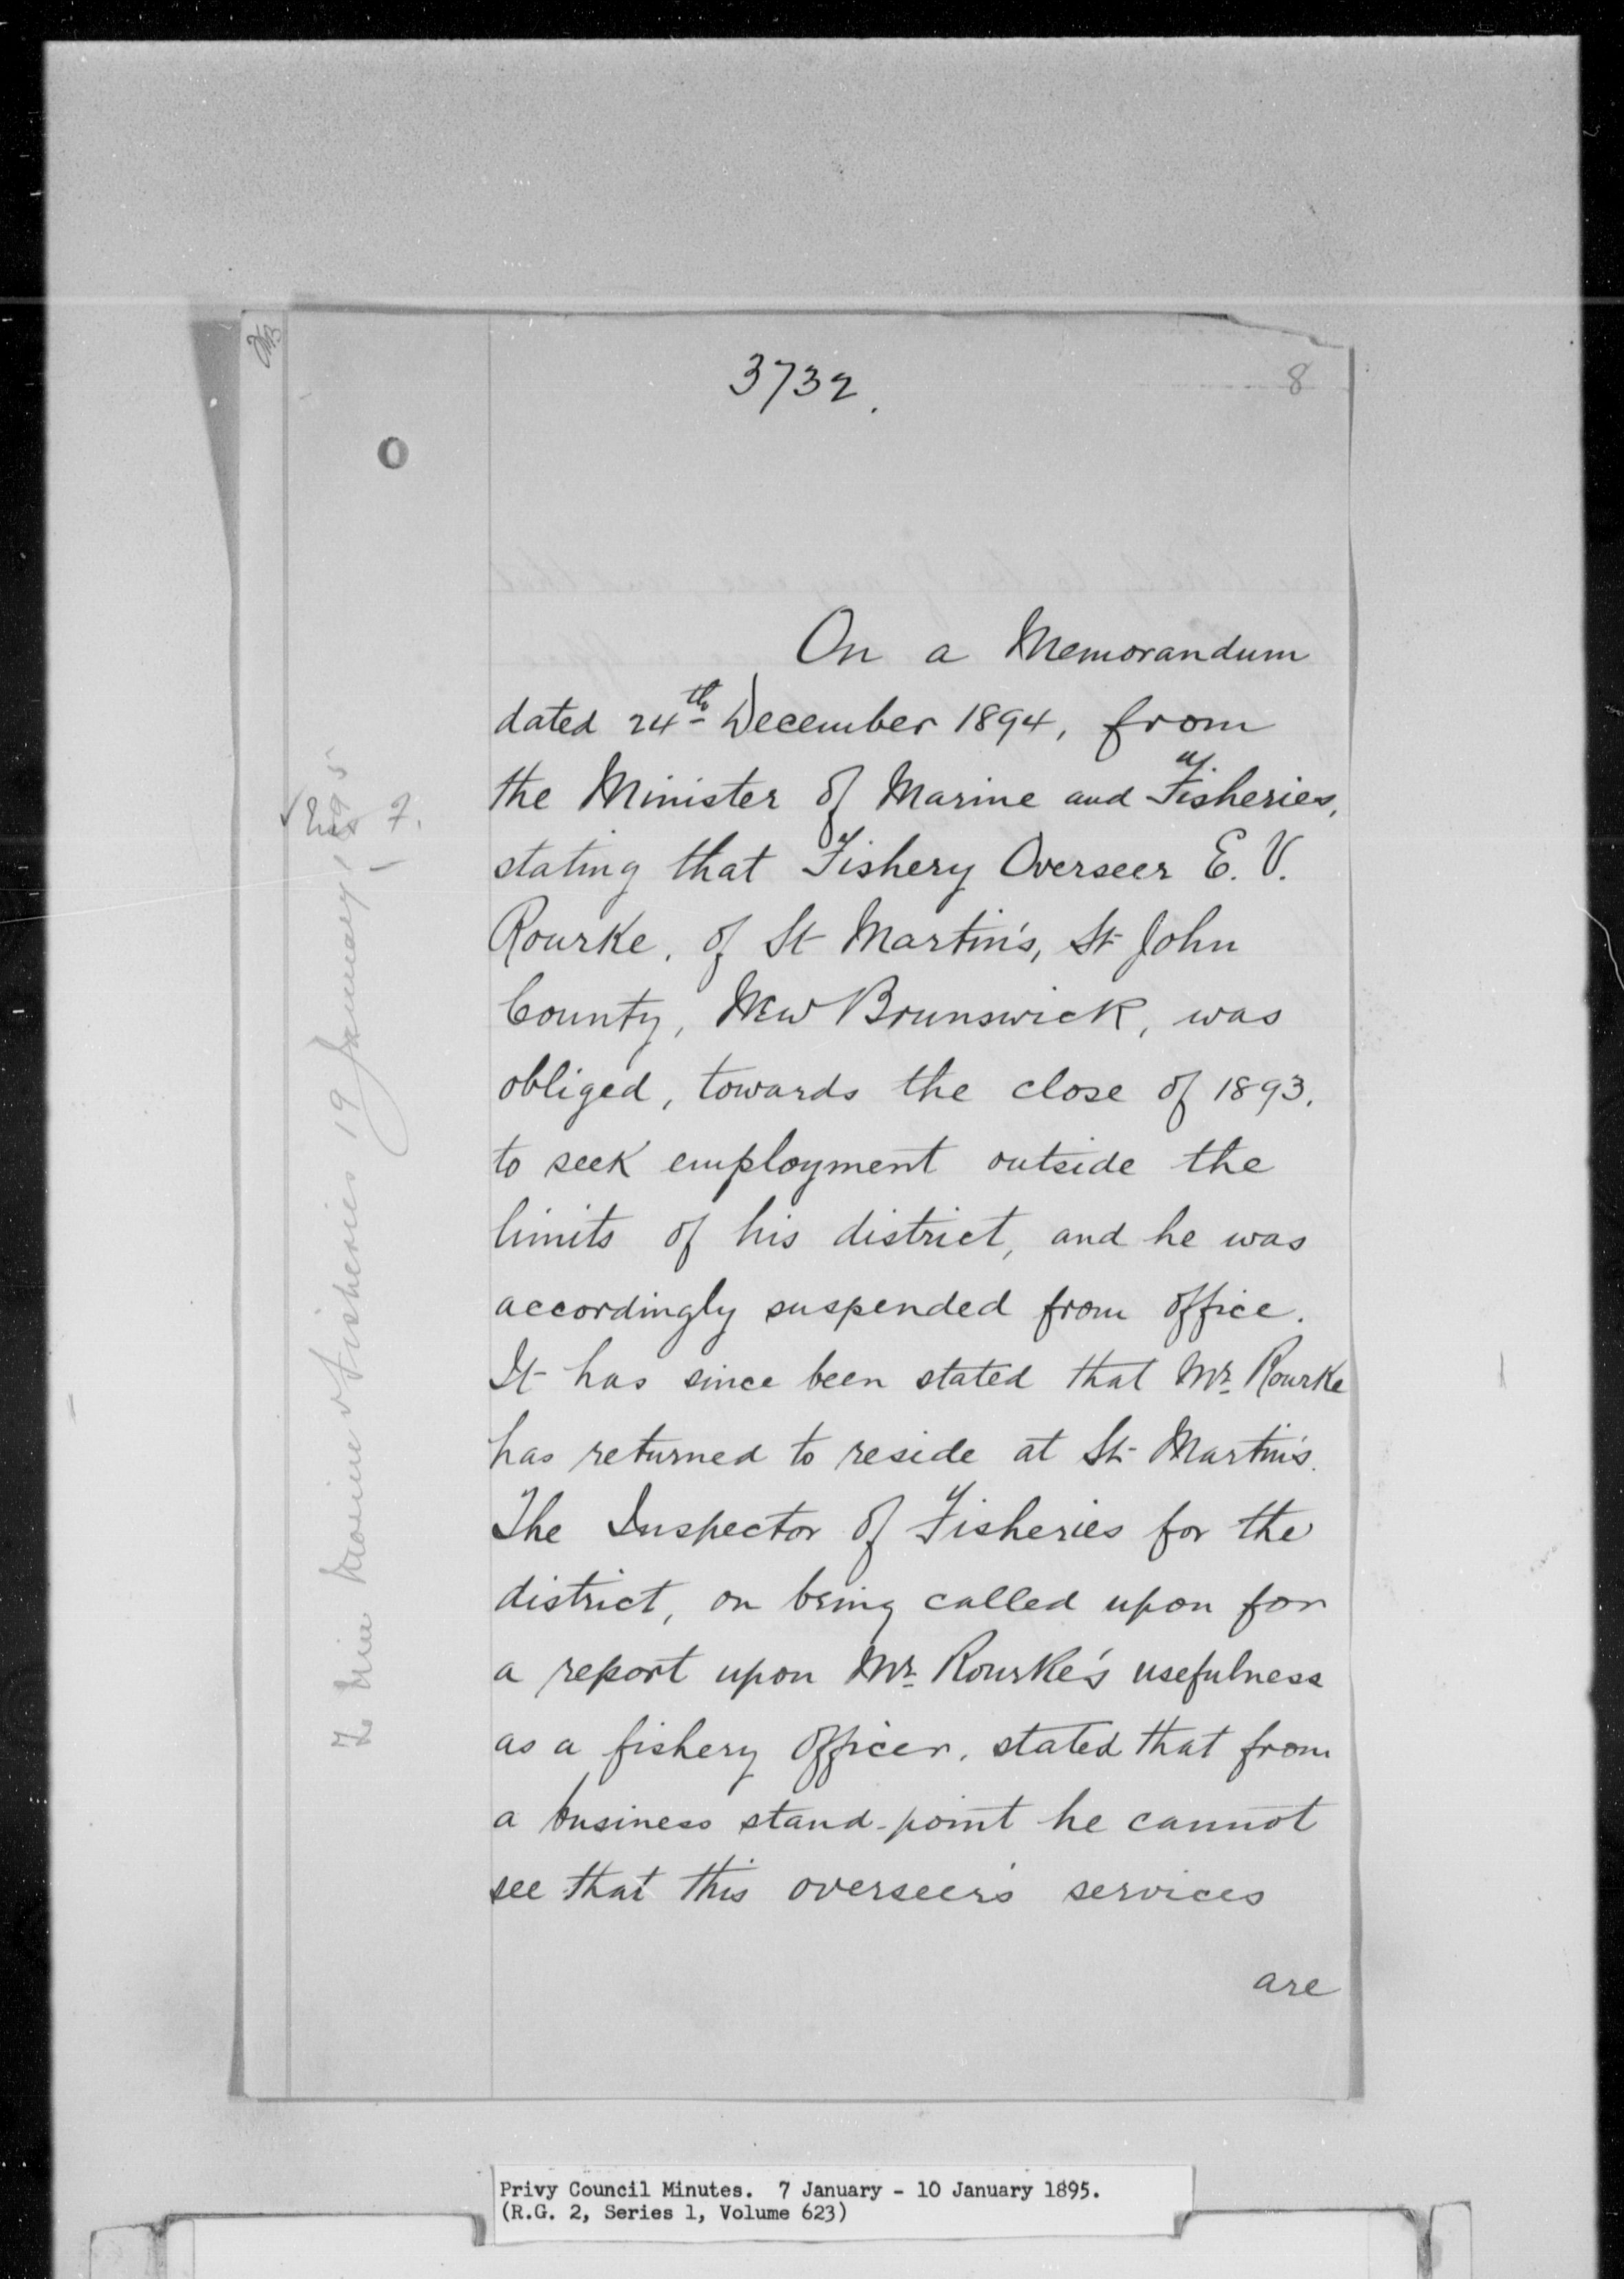 3732.
8
On a Memorandum
dated 24th December 1894, from
the Minister of Marine and Fisheries,
stating that Fishery Overseer E. V.
Rourke, of St Martin's, St John
County, New Brunswick, was
obliged, towards the close of 1893,
to seek employment outside the
limits of his district, and he was
accordingly suspended from office.
It has since been stated that Mr. Rourke
has returned to reside at St Martin's.
The Inspector of Fisheries for the
district, on being called upon for
a report upon Mr. Rourke's usefulness
as a fishery officer, stated that from
a business stand-point he cannot
see that this overseer's services
are
To Min Marine & Fisheries 19 January 1895
Privy Council Minutes. 7 January - 10 January 1895.
(R.G. 2, Series 1, Volume 623)